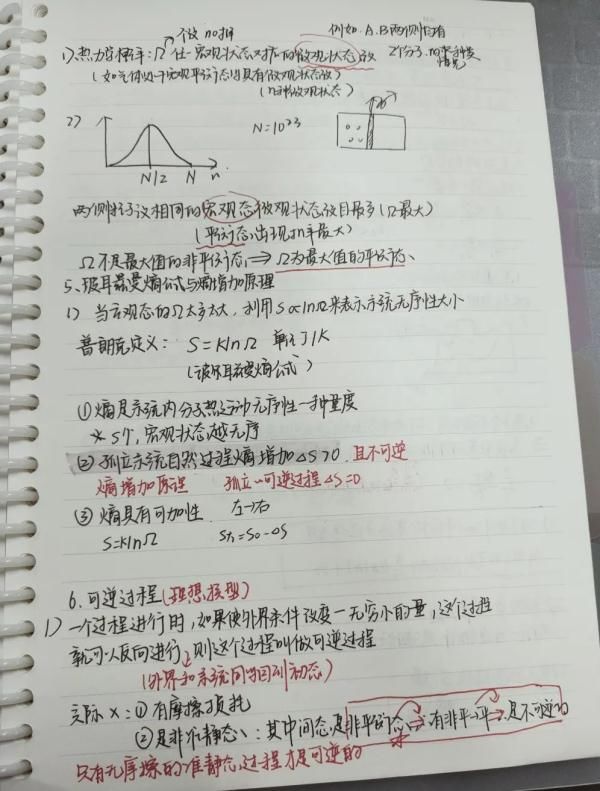 个数 no.指
例如.A.B两侧均有
1).热力学概率:Ω 任一宏观状态对应的微观状态数
2个分子.的某种情况
(如气体处于宏观平衡态时具有微观状态数)
(几种微观状态)
2)
N=10^23
N/2 N n
两侧粒子数相同的宏观态微观状态数目最多(Ω最大)
(平衡态,出现几率最大)
Ω不是最大值的非平衡态 ⇒ Ω为最大值的平衡态、
5、玻耳兹曼熵公式与熵增加原理
1) 当宏观态的Ω太多太大,利用S∝lnΩ来表示系统无序性大小
普朗克定义: S=klnΩ 单位J/K
(玻尔兹曼熵公式)
①熵是系统内分子热运动无序性一种量度
* S个,宏观状态越无序
② 孤立系统自然过程熵增加 ΔS>0. 且不可逆
熵增加原理 孤立〃可逆过程ΔS=0
③ 熵具有可加性. 左→右
S=klnΩ
6.可逆过程(理想模型)
1) 一个过程进行时,如果使外界条件改变一无穷小的量,这个过程
就可以反向进行,则这个过程叫做可逆过程
(外界和系统同时回到初态)
实际×:①有摩擦损耗
②是非准静态〃:其中间态是非平衡态 → 有非平→平.是不可逆的
只有无摩擦的准静态过程才是可逆的